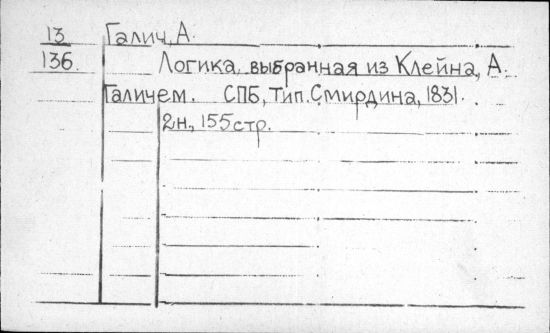 13 Галич, А.
136. Логика, выбранная из Клейна, А.
Галичем. СПБ, Тип. Смирдина, 1831.
2н., 155стр.